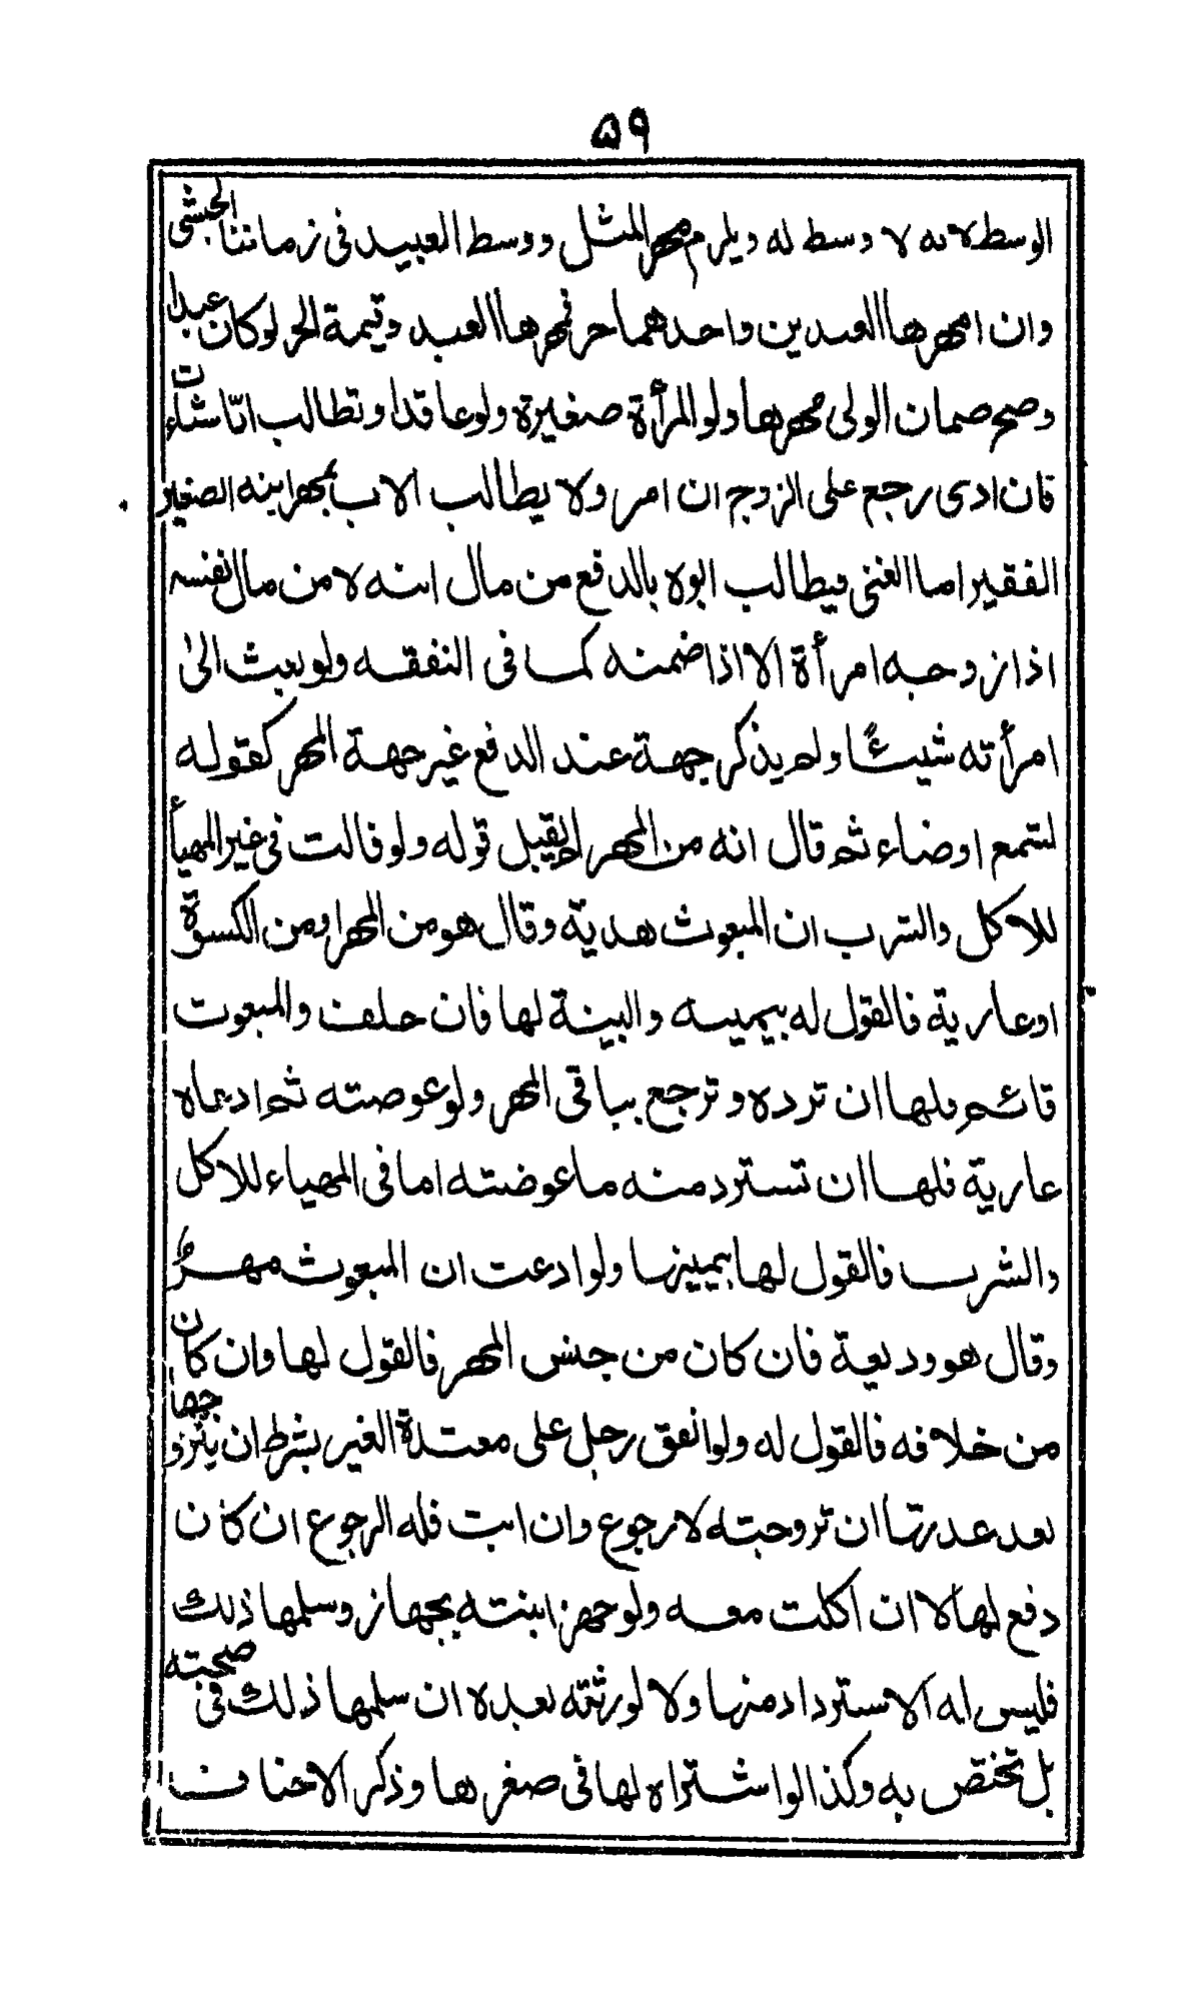 ۵۹
الوسط لانه لا وسط له ويلزم مهر المثل ووسط العبيد فى زماننا الحبشى
وان امهرها العبدين واحدهما حر فمهرها العبد وقيمة الحر لوكان عبدا
وصح ضمان الولى مهرها ولو المرأة صغيرة ولوعاقدا وتطالب ايّا شاءت
فان ادى رجع على الزوج ان امر ولا يطالب الاب بمهر ابنه الصغير
الفقير اما الغنى فيطالب ابوه بالدفع من مال ابنه لا من مال نفسه
اذا زوجه امرأة الا اذا ضمنه كما فى النفقه ولو بعث الىٰ
امرأته شيئًا ولم يذكر جهة عند الدفع غير جهة المهر كقوله
لشمع او ضاء ثم قال انه من المهر لم يقبل قوله ولو قالت فى غير المهيأ
للاكل والشرب ان المبعوث هدية وقال هو من المهر او من الكسوة
او عارية فالقول له بيمينه والبينة لها فان حلف والمبعوث
قائم فلها ان ترده وترجع بباقى المهر ولو عوضته ثم ادعاه
عارية فلها ان تسترد منه ما عوضته اما فى المهياء للاكل
والشرب فالقول لها بيمينها ولو ادعت ان المبعوث مهرٌ
وقال هو وديعة فان كان من جنس المهر فالقول لها وان كان
من خلافه فالقول له ولو انفق رجل على معتدة الغير بشرط ان يتزوجها
بعد عدتها ان تزوجته لا رجوع وان ابت فله الرجوع ان كان
دفع لها لا ان اكلت معه ولو جهز ابنته بجهاز وسلمها ذلك
فليس له الاسترداد منها ولا لورثته بعده ان سلمها ذلك فى صحته
بل تختص به وكذا لو اشتراه لها فى صغرها وذكر الاحناف